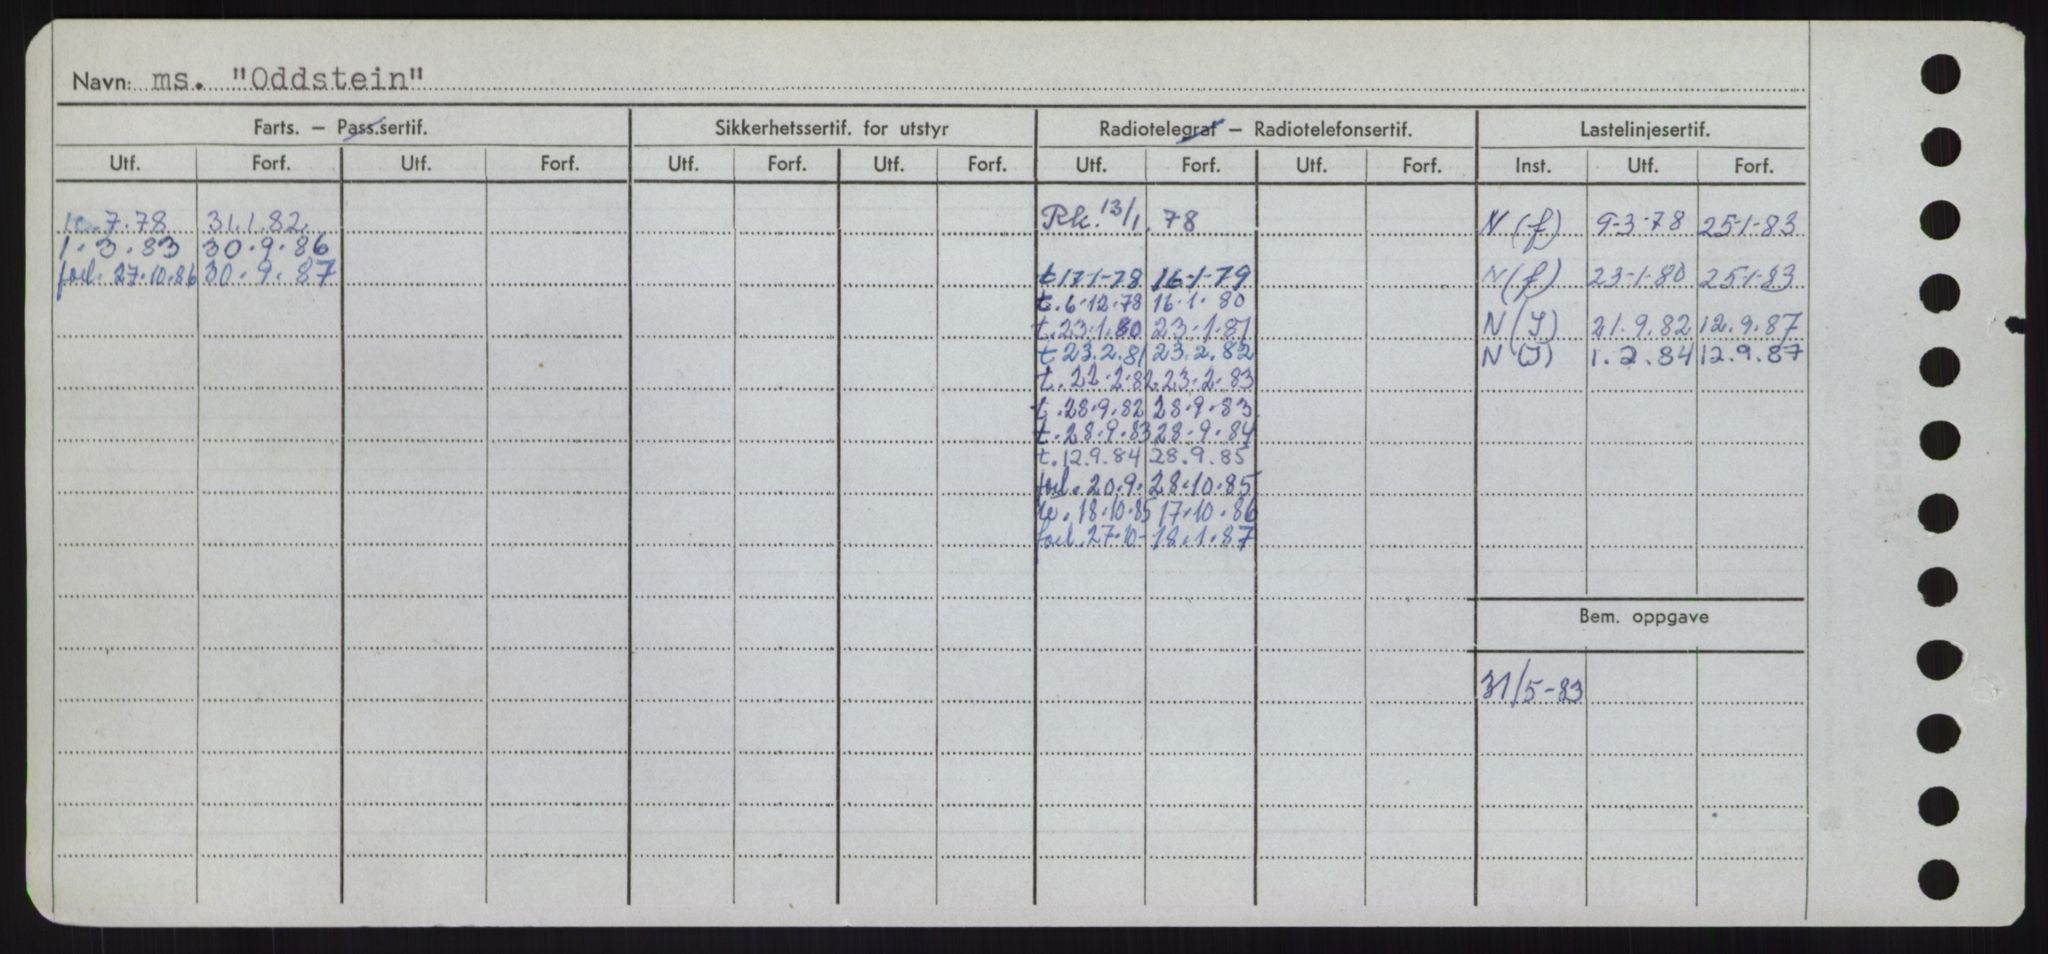 Navn: ms. "Oddstein"
Farts. – Pass.sertif. Sikkerhetssertif. for utstyr Radiotelegraf – Radiotelefonsertif. Lastelinjesertif.
Utf. Forf. Utf. Forf. Utf. Forf. Utf. Forf. Utf. Forf. Utf. Forf. Inst. Utf. Forf.
10.7.78 31.1.82 Rk. 13/1.78 N (f) 9-3-78 25-1-83
1.3.83 30.9.86
forl. 27.10.86 30.9.87 t 17-1-78 16-1-79 N (f) 23-1-80 25-1-83
t. 6.12.78 16.1.80
t. 23.1.80 23.1.81 N (I) 21.9.82 12.9.87
t 23.2.81 23.2.82 N (I) 1.2.84 12.9.87
t. 22.2.82 23.2.83
t. 28.9.82 28.9.83
t. 28.9.83 28.9.84
t. 12.9.84 28.9.85
forl. 20.9. 28.10.85
18.10.85 17.10.86
forl. 27.10- 18.1.87
Bem. oppgave
31/5-83